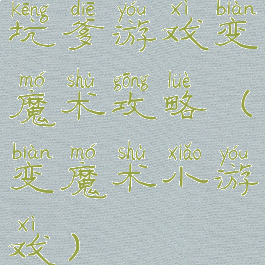 kēng diē yóu xì biàn
坑爹游戏变
mó shù gōng lüè
魔术攻略（
biàn mó shù xiǎo yóu
变魔术小游
xì
戏）